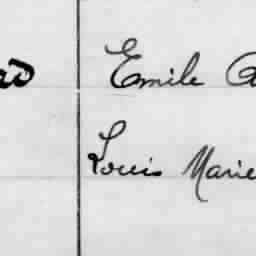 Emile
Louis Marie